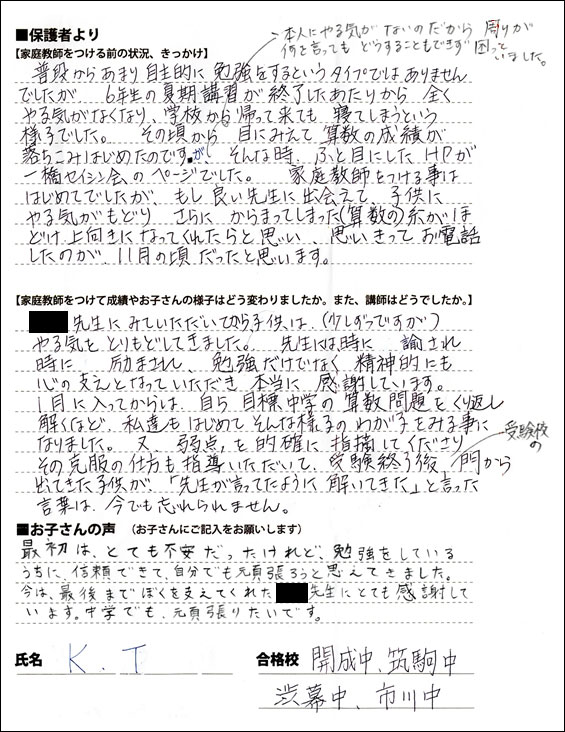 ■保護者より
本人にやる気がないのだから 周りが
何を言っても どうすることもできず 困って
いました。
【家庭教師をつける前の状況、きっかけ】
普段からあまり自主的に 勉強をするというタイプではありません
でしたが、6年生の夏期講習が終了したあたりから 全く
やる気がなくなり、学校から帰って来ても 寝てしまうという
様子でした。 その頃から 目にみえて 算数の成績が
落ちこみはじめたのですが、そんな時、ふと目にした HPが
一橋セイシン会の ページでした。 家庭教師をつける事は
はじめてでしたが、もし良い先生に出会えて、子供に
やる気がもどり さらに からまってしまった(算数の)糸がほ
どけ上向きになってくれたらと思い、思いきって お電話
したのが、11月の頃だったと思います。
【家庭教師をつけて成績やお子さんの様子はどう変わりましたか。また、講師はどうでしたか。】
先生にみていただいてから子供は、(少しずつですが)
やる気を とりもどしてきました。 先生には時に 諭され
時に 励まされ、勉強だけでなく 精神的にも
心の支えとなっていただき 本当に 感謝しています。
1月に入ってからは、自ら 目標中学の 算数問題を くり返し
解くなど、私達も はじめて そんな様子の わが子を みる事に
なりました。 又、弱点を的確に 指摘してくださり
その克服の仕方も指導いただいて、受験終了後 門から
受験校
の
出てきた子供が、「先生が言ってたように 解いてきた」と言った
言葉は、今でも忘れられません。
■お子さんの声 (お子さんにご記入をお願いします)
最初は、とても不安だったけれど、勉強をしている
うちに、信頼できて、自分でも元頁張ろうと思えてきました。
今は、最後までぼくを支えてくれた 先生にとても感謝して
います。中学でも、元頁張りたいです。
氏名 K.T 合格校 開成中、筑駒中
渋幕中、市川中